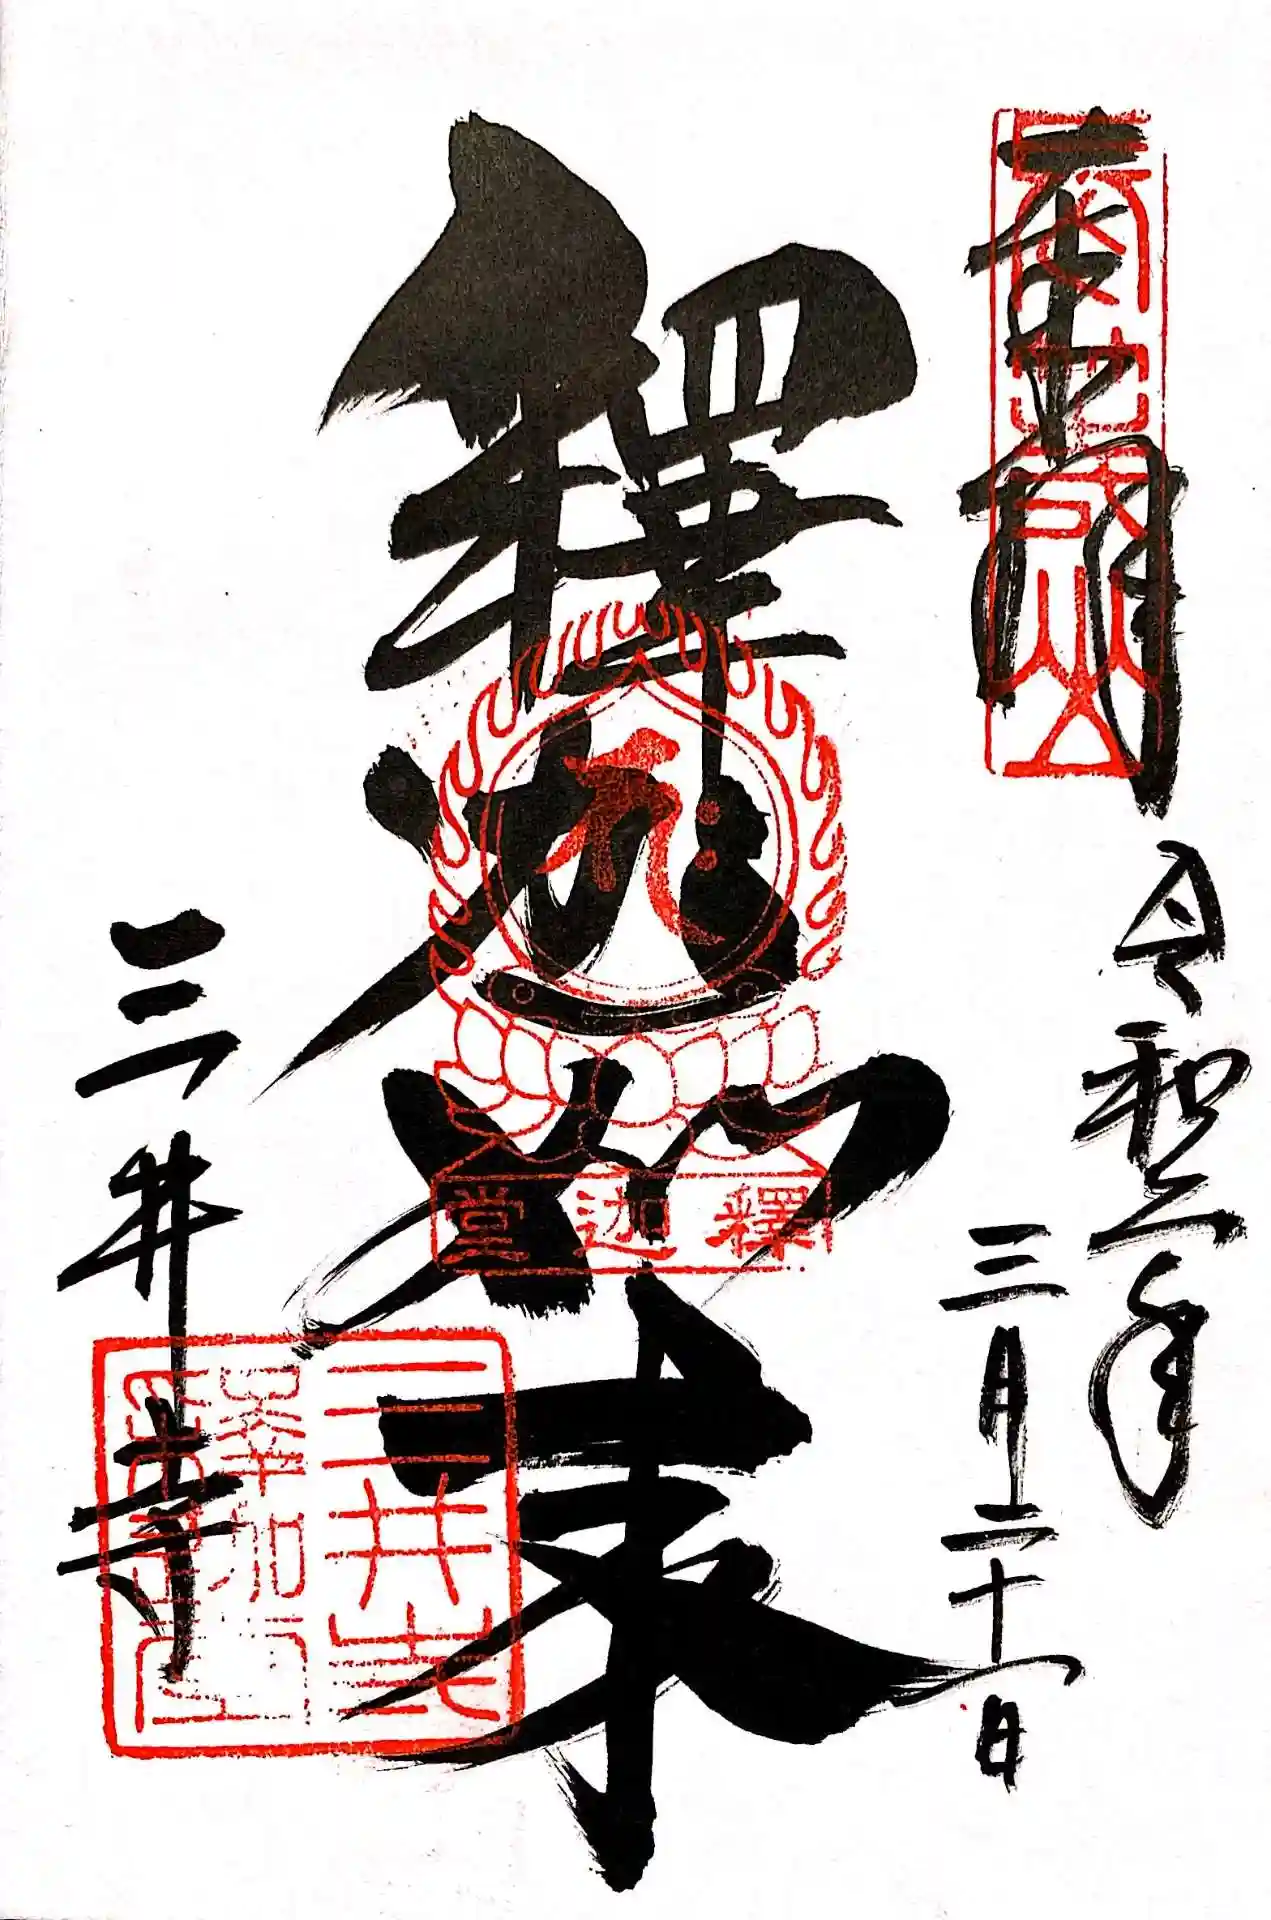 奉拝
令和二年
三月二十一日
釋迦如来
釋迦堂
三井寺
三井寺